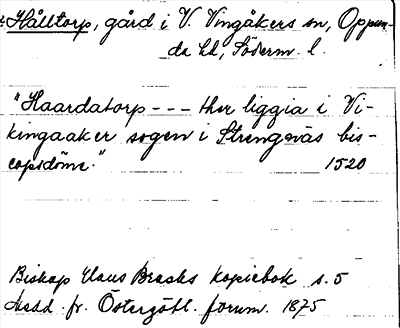 Hålltorp, gård i V. Vingåkers sn, Oppun-
da hd, Söderm. l.
"Haardatorp --- ther liggia i Vi-
kingaaker sogen i Strengenäs bis-
copsdöme." 1520
Biskop Hans Brasks kopiebok s. 5
Medd. fr. Östergötl. fornm. 1875